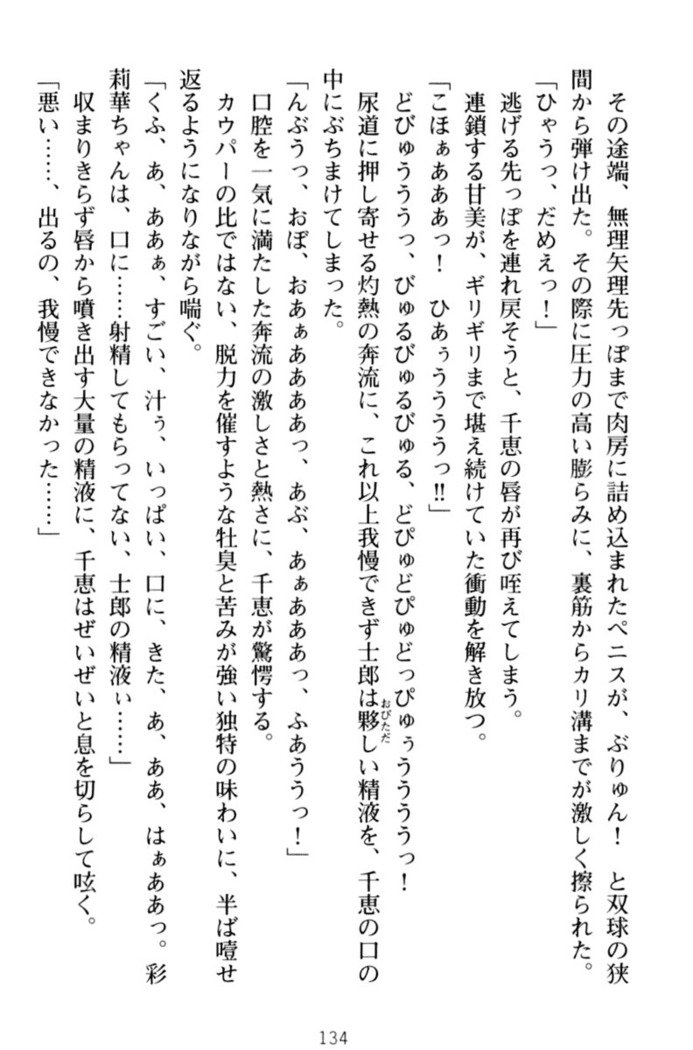 その途端、無理矢理先っぽまで肉房に詰め込まれたペニスが、ぶりゅん！　と双球の狭
間から弾け出た。その際に圧力の高い膨らみに、裏筋からカリ溝までが激しく擦られた。
「ひゃうっ、だめえっ！」
逃げる先っぽを連れ戻そうと、千恵の唇が再び咥えてしまう。
連鎖する甘美が、ギリギリまで堪え続けていた衝動を解き放つ。
「こほぁあああっ！　ひあぅうううっ‼」
どびゅうううっ、びゅるびゅるびゅる、どぴゅどぴゅどっぴゅぅうううっ！
尿道に押し寄せる灼熱の奔流に、これ以上我慢できず士郎は夥おびただしい精液を、千恵の口の
中にぶちまけてしまった。
「んぶうっ、おぼ、おあぁああああっ、あぶ、あぁあああっ、ふあううっ！」
口腔を一気に満たした奔流の激しさと熱さに、千恵が驚愕する。
カウパーの比ではない、脱力を催すような牡臭と苦みが強い独特の味わいに、半ば噎せ
返るようになりながら喘ぐ。
「くふ、あ、ああぁ、すごい、汁ぅ、いっぱい、口に、きた、あ、ああ、はぁああっ。彩
莉華ちゃんは、口に……射精してもらってない、士郎の精液ぃ……」
収まりきらず唇から噴き出す大量の精液に、千恵はぜいぜいと息を切らして呟く。
「悪い……、出るの、我慢できなかった……」
134